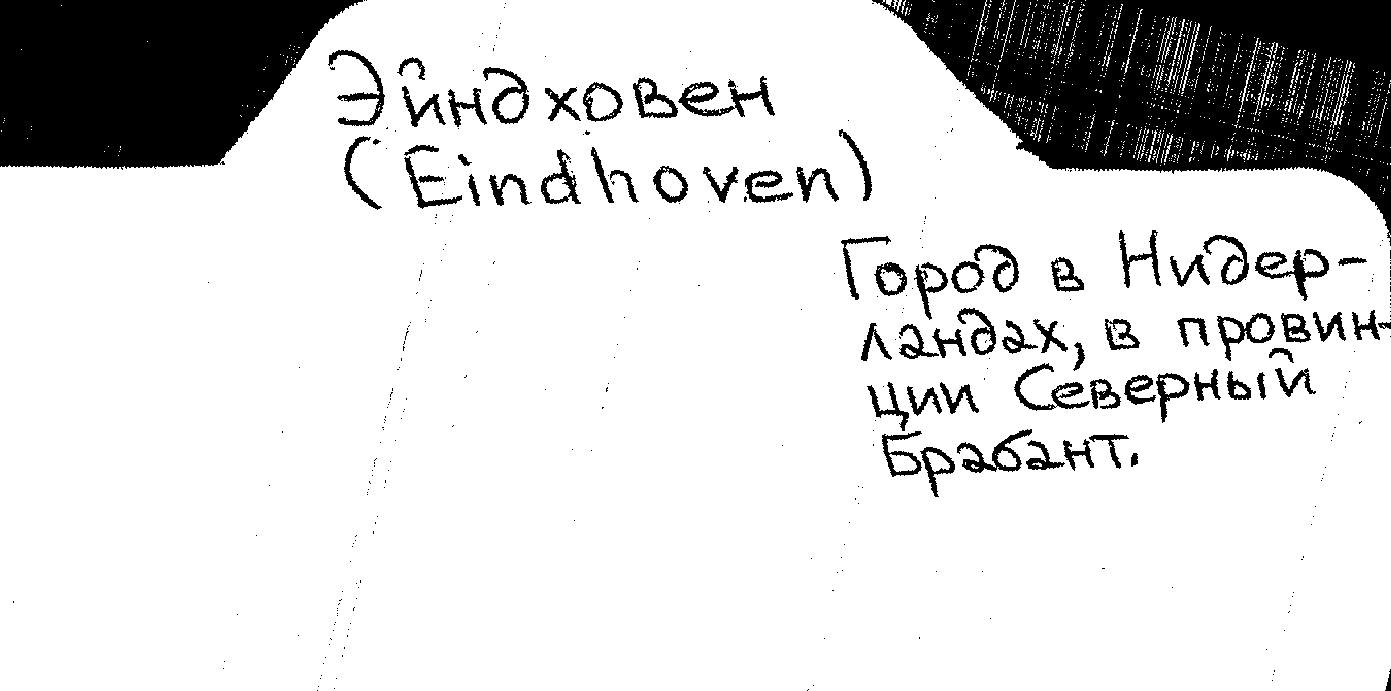 Эйндховен
(Eindhoven)
Город в Нидер-
ландах, в провин-
ции Северный
Брабант.